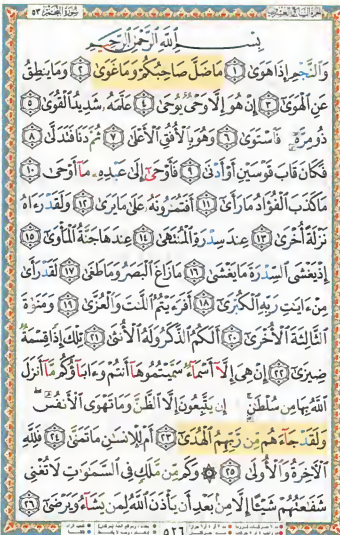 سُورَةُ النَّجْمِ ٥٣
بِسْمِ اللَّهِ الرَّحْمَٰنِ الرَّحِيمِ
وَالنَّجْمِ إِذَا هَوَىٰ ١ مَا ضَلَّ صَاحِبُكُمْ وَمَا غَوَىٰ ٢ وَمَا يَنطِقُ
عَنِ الْهَوَىٰ ٣ إِنْ هُوَ إِلَّا وَحْيٌ يُوحَىٰ ٤ عَلَّمَهُ شَدِيدُ الْقُوَىٰ ٥
ذُو مِرَّةٍ فَاسْتَوَىٰ ٦ وَهُوَ بِالْأُفُقِ الْأَعْلَىٰ ٧ ثُمَّ دَنَا فَتَدَلَّىٰ ٨
فَكَانَ قَابَ قَوْسَيْنِ أَوْ أَدْنَىٰ ٩ فَأَوْحَىٰ إِلَىٰ عَبْدِهِ مَا أَوْحَىٰ ١٠
مَا كَذَبَ الْفُؤَادُ مَا رَأَىٰ ١١ أَفَتُمَارُونَهُ عَلَىٰ مَا يَرَىٰ ١٢ وَلَقَدْ رَآهُ
نَزْلَةً أُخْرَىٰ ١٣ عِندَ سِدْرَةِ الْمُنتَهَىٰ ١٤ عِندَهَا جَنَّةُ الْمَأْوَىٰ ١٥
إِذْ يَغْشَى السِّدْرَةَ مَا يَغْشَىٰ ١٦ مَا زَاغَ الْبَصَرُ وَمَا طَغَىٰ ١٧ لَقَدْ رَأَىٰ
مِنْ آيَاتِ رَبِّهِ الْكُبْرَىٰ ١٨ أَفَرَأَيْتُمُ اللَّاتَ وَالْعُزَّىٰ ١٩ وَمَنَاةَ
الثَّالِثَةَ الْأُخْرَىٰ ٢٠ أَلَكُمُ الذَّكَرُ وَلَهُ الْأُنثَىٰ ٢١ تِلْكَ إِذًا قِسْمَةٌ
ضِيزَىٰ ٢٢ إِنْ هِيَ إِلَّا أَسْمَاءٌ سَمَّيْتُمُوهَا أَنتُمْ وَآبَاؤُكُم مَّا أَنزَلَ
اللَّهُ بِهَا مِن سُلْطَانٍ إِن يَتَّبِعُونَ إِلَّا الظَّنَّ وَمَا تَهْوَى الْأَنفُسُ
وَلَقَدْ جَاءَهُم مِّن رَّبِّهِمُ الْهُدَىٰ ٢٣ أَمْ لِلْإِنسَانِ مَا تَمَنَّىٰ ٢٤ فَلِلَّهِ
الْآخِرَةُ وَالْأُولَىٰ ٢٥ ۞ وَكَم مِّن مَّلَكٍ فِي السَّمَاوَاتِ لَا تُغْنِي
شَفَاعَتُهُمْ شَيْئًا إِلَّا مِن بَعْدِ أَن يَأْذَنَ اللَّهُ لِمَن يَشَاءُ وَيَرْضَىٰ ٢٦
٥٢٦